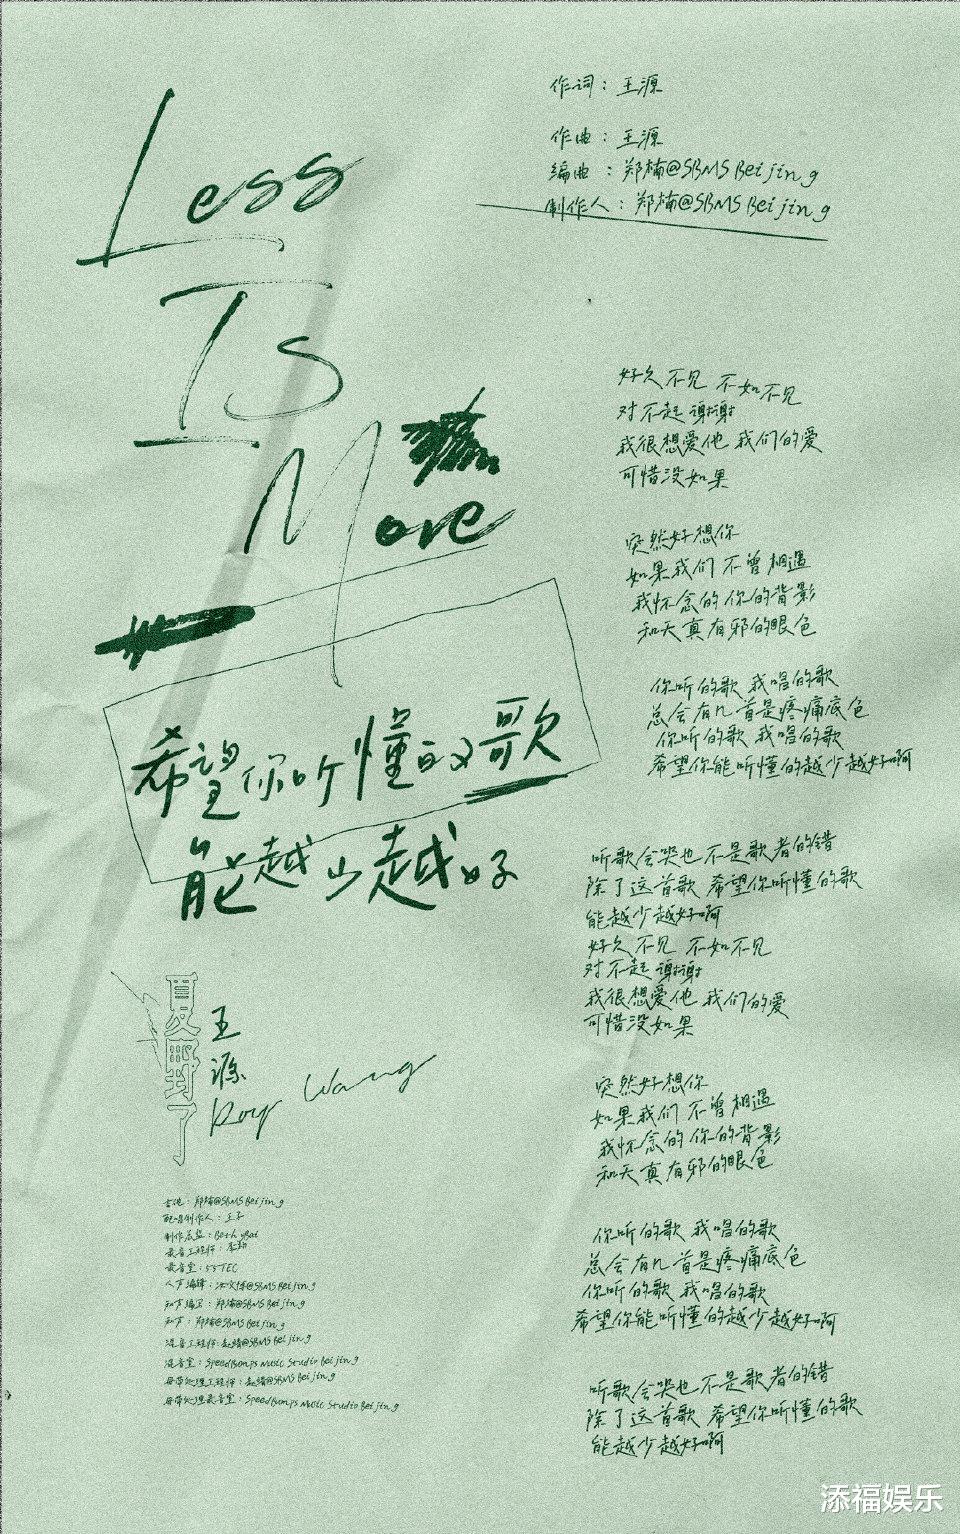 Less
Is
More
希望你听懂的歌
能越少越好
夏野了
王源
Roy Wang
作词：王源
作曲：王源
编曲：郑楠@SBMS Beijing
制作人：郑楠@SBMS Beijing
好久不见 不如不见
对不起 谢谢
我很想爱他 我们的爱
可惜没如果
突然好想你
如果我们 不曾相遇
我怀念的 你的背影
和天真有邪的眼色
你听的歌 我唱的歌
总会有几首是疼痛底色
你听的歌 我唱的歌
希望你能听懂的越少越好啊
听歌会哭也不是歌者的错
除了这首歌 希望你听懂的歌
能越少越好啊
好久不见 不如不见
对不起 谢谢
我很想爱他 我们的爱
可惜没如果
突然好想你
如果我们 不曾相遇
我怀念的 你的背影
和天真有邪的眼色
你听的歌 我唱的歌
总会有几首是疼痛底色
你听的歌 我唱的歌
希望你能听懂的越少越好啊
听歌会哭也不是歌者的错
除了这首歌 希望你听懂的歌
能越少越好啊
吉他：郑楠@SBMS Beijing
配唱制作人：
制作总监：
录音工程师：
录音室：55TEC
人声编辑：@SBMS Beijing
和声编写：郑楠@SBMS Beijing
和声：郑楠@SBMS Beijing
混音工程师：赵靖@SBMS Beijing
混音室：SpeedBumps Music Studio Beijing
母带处理工程师：赵靖@SBMS Beijing
母带处理录音室：SpeedBumps Music Studio Beijing
添福娱乐